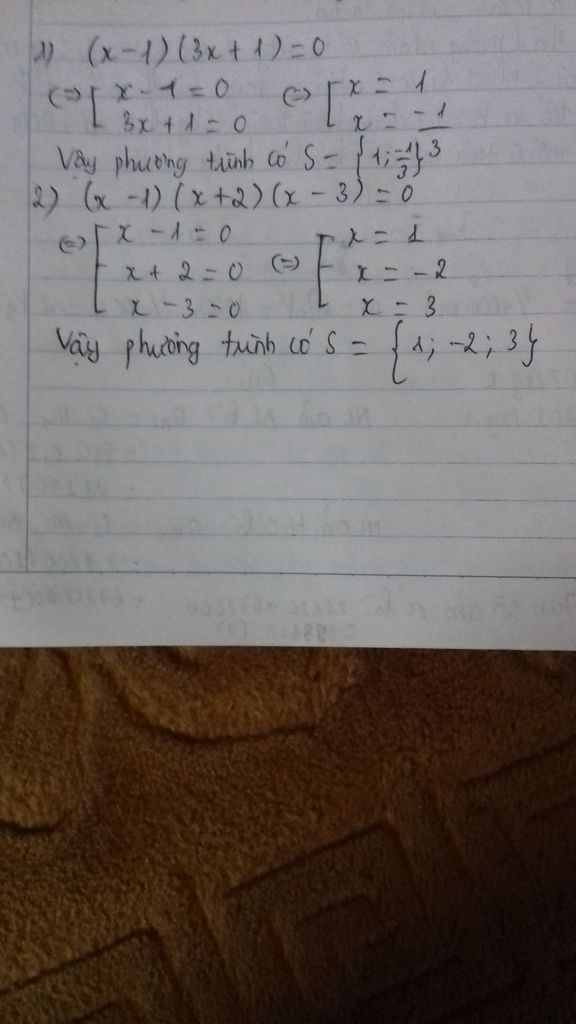 1) (x-1)(3x+1)=0
⇔ [ x-1=0 ⇔ [ x = 1
3x+1=0 x = -1/3
Vậy phương trình có S = {1; -1/3}
2) (x-1)(x+2)(x-3)=0
⇔ [ x-1=0 [ x = 1
x+2=0 ⇔ x = -2
x-3=0 x = 3
Vậy phương trình có S = {1; -2; 3}